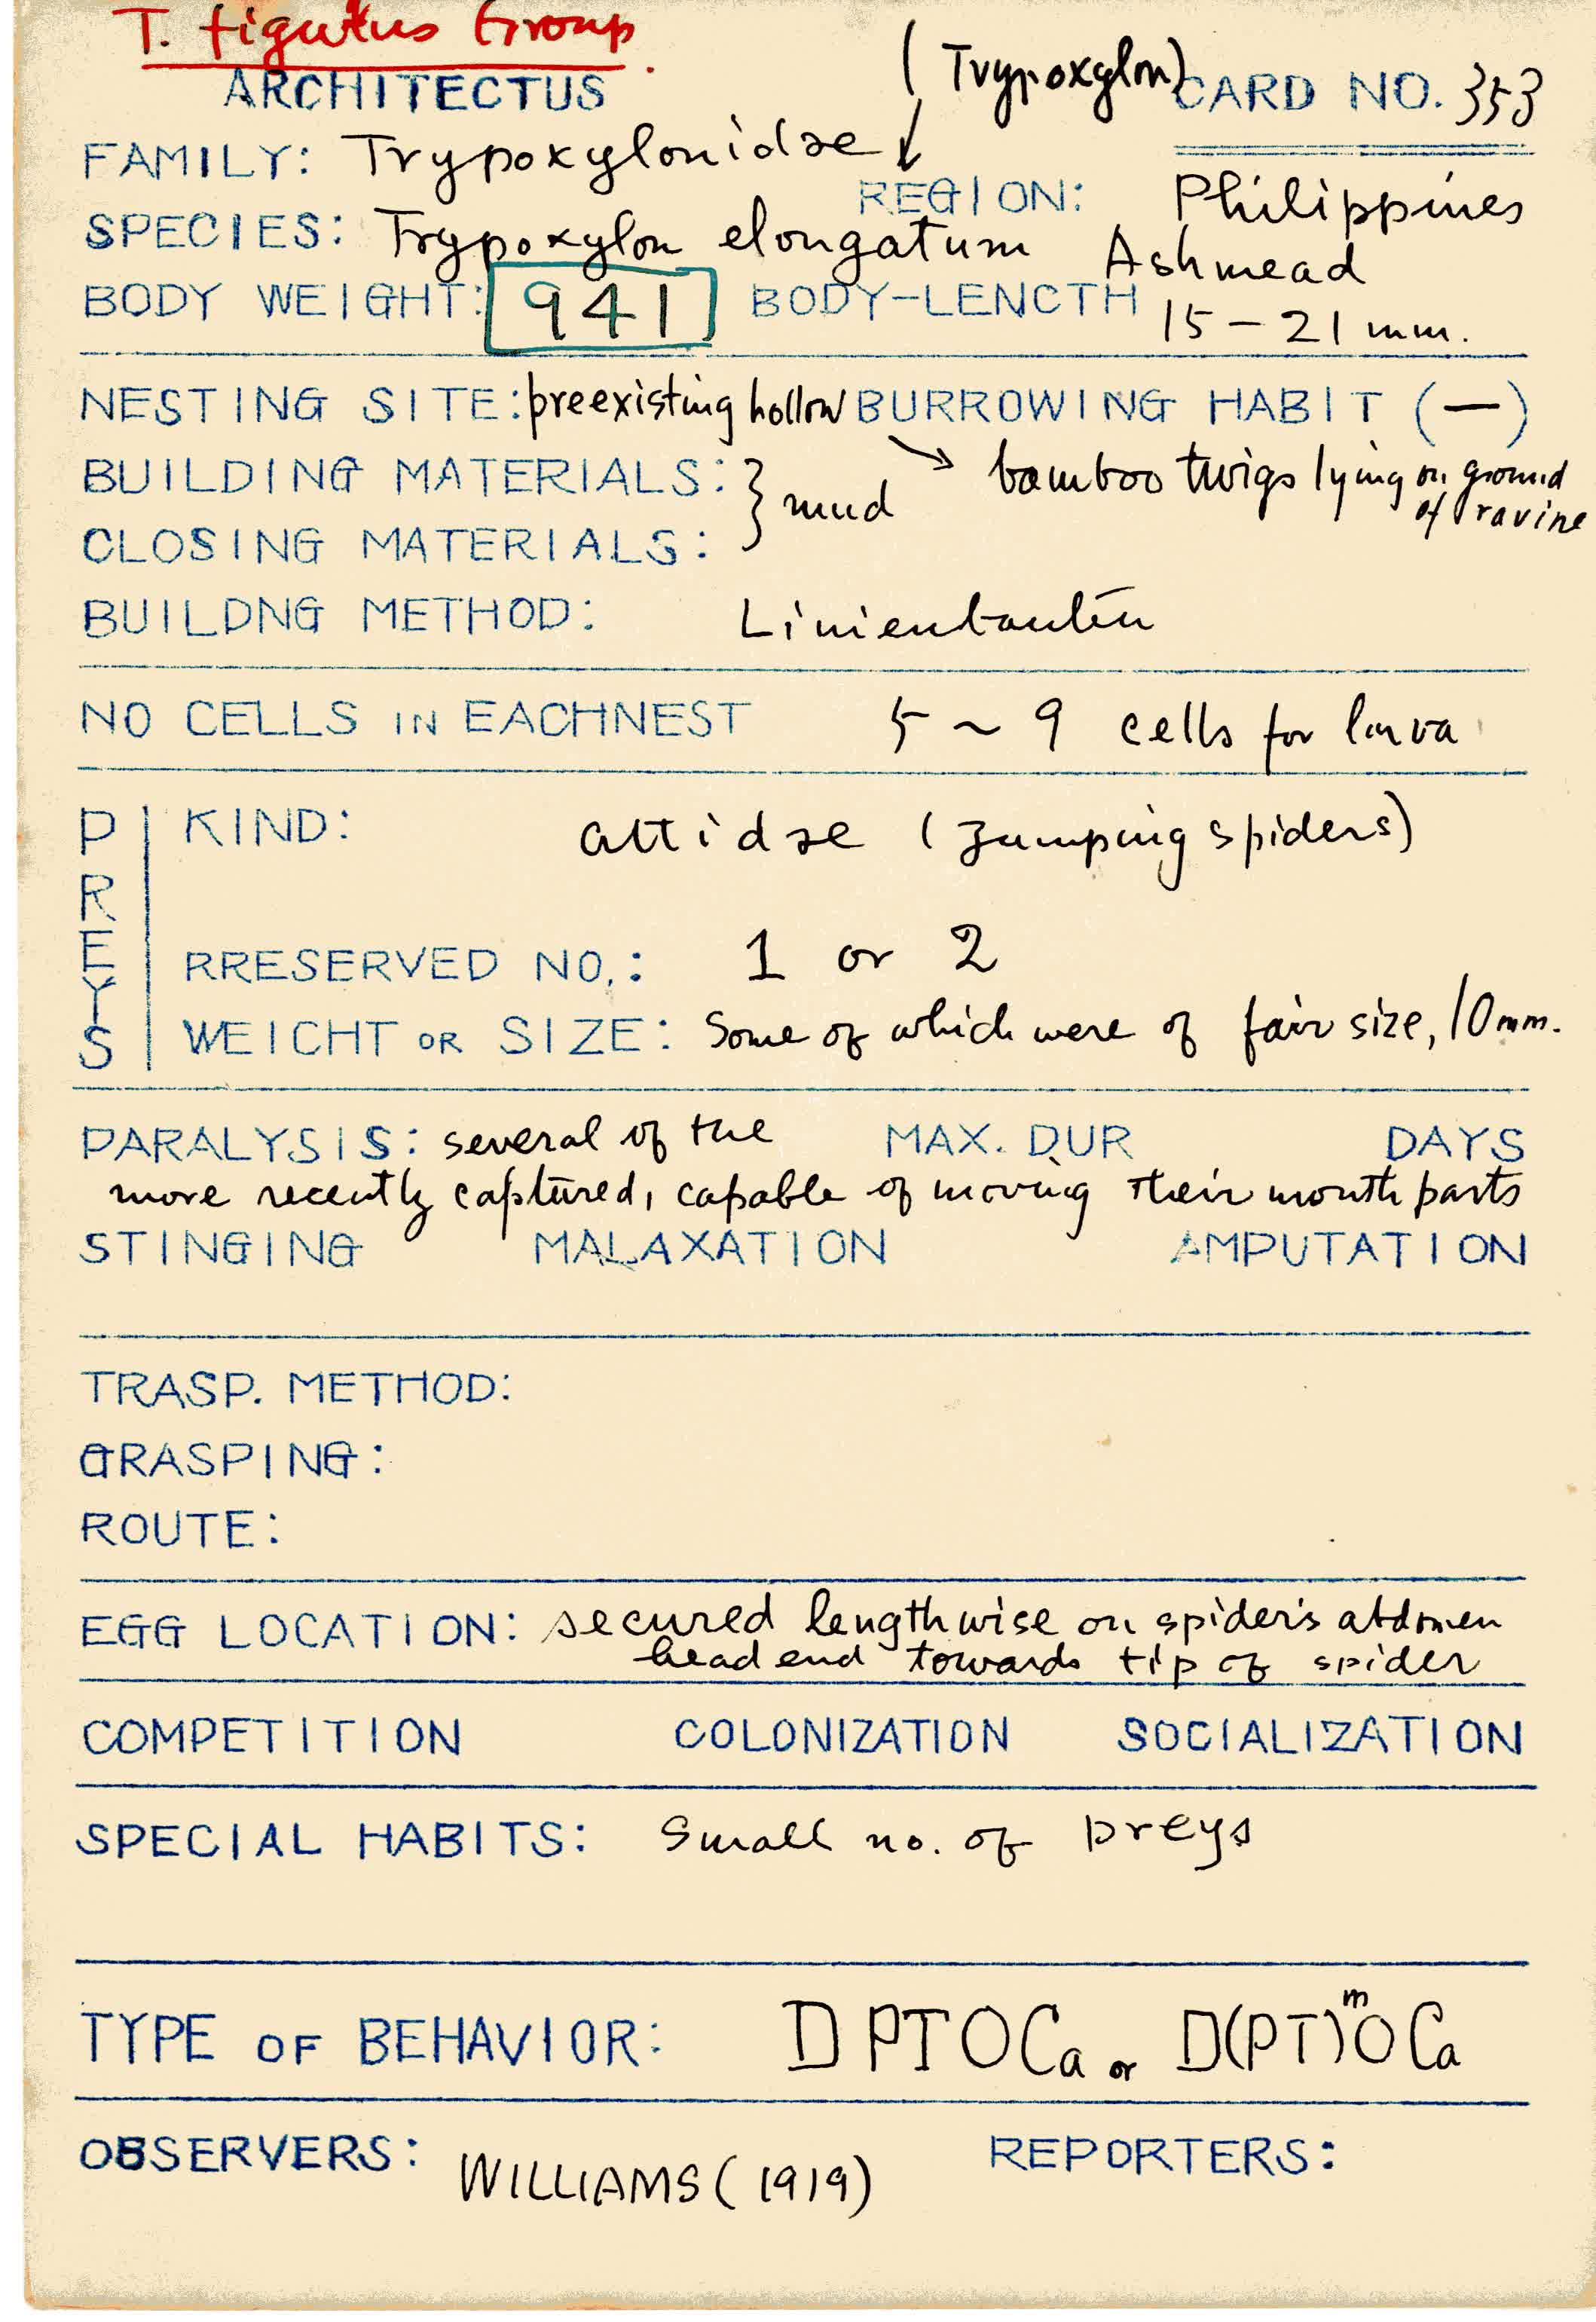 T. figulus Group.
ARCHITECTUS
(Trypoxylon)
CARD NO. 353
FAMILY: Trypoxylonidae
REGION: Philippines
SPECIES: Trypoxylon elongatum Ashmead
BODY WEIGHT: 941 BODY-LENGTH 15-21 mm.
NESTING SITE: preexisting hollow BURROWING HABIT (—)
BUILDING MATERIALS: } mud
bamboo twigs lying on ground
of ravine
CLOSING MATERIALS:
BUILDNG METHOD: Linienbauten
NO CELLS IN EACHNEST 5 ~ 9 cells for larva
PREYS
KIND: Attidae (Jumping spiders)
RRESERVED NO.: 1 or 2
WEICHT OR SIZE: Some of which were of fair size, 10mm.
PARALYSIS: several of the MAX. DUR DAYS
more recently captured, capable of moving their mouth parts
STINGING MALAXATION AMPUTATION
TRASP. METHOD:
GRASPING:
ROUTE:
EGG LOCATION: secured lengthwise on spider's abdomen
head end towards tip of spider
COMPETITION COLONIZATION SOCIALIZATION
SPECIAL HABITS: Small no. of preys
TYPE OF BEHAVIOR: DPTOCa or D(PT)ᵐOCa
OBSERVERS: WILLIAMS (1919) REPORTERS: